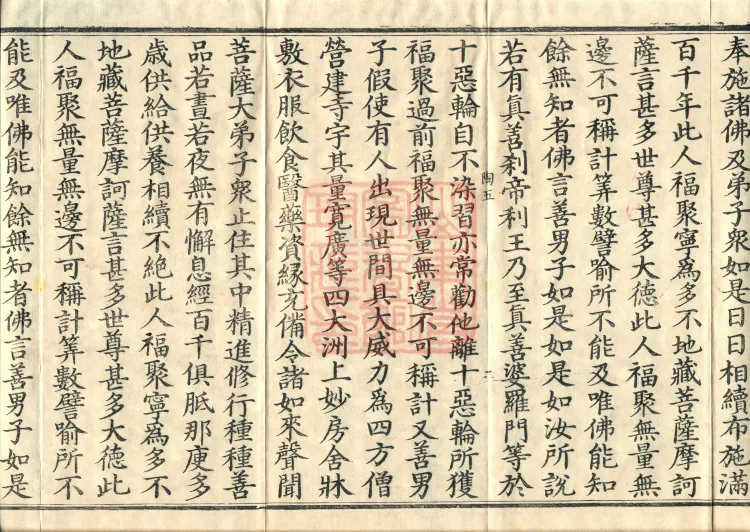 奉施諸佛及弟子衆如是日日相續布施滿
百千年此人福聚寧為多不地藏菩薩摩訶
薩言甚多世尊甚多大德此人福聚無量無
邊不可稱計筭數譬喻所不能及唯佛能知
餘無知者佛言善男子如是如是如汝所說
若有真善剎帝利王乃至真善婆羅門等於
陶五
二
十惡輪自不染習亦常勸他離十惡輪所獲
福聚過前福聚無量無邊不可稱計又善男
子假使有人出現世間具大威力為四方僧
營建寺宇其量寬廣等四大洲上妙房舍牀
敷衣服飲食醫藥資緣充備令諸如來聲聞
菩薩大弟子衆止住其中精進修行種種善
品若晝若夜無有懈息經百千俱胝那庾多
歲供給供養相續不絕此人福聚寧為多不
地藏菩薩摩訶薩言甚多世尊甚多大德此
人福聚無量無邊不可稱計筭數譬喻所不
能及唯佛能知餘無知者佛言善男子如是